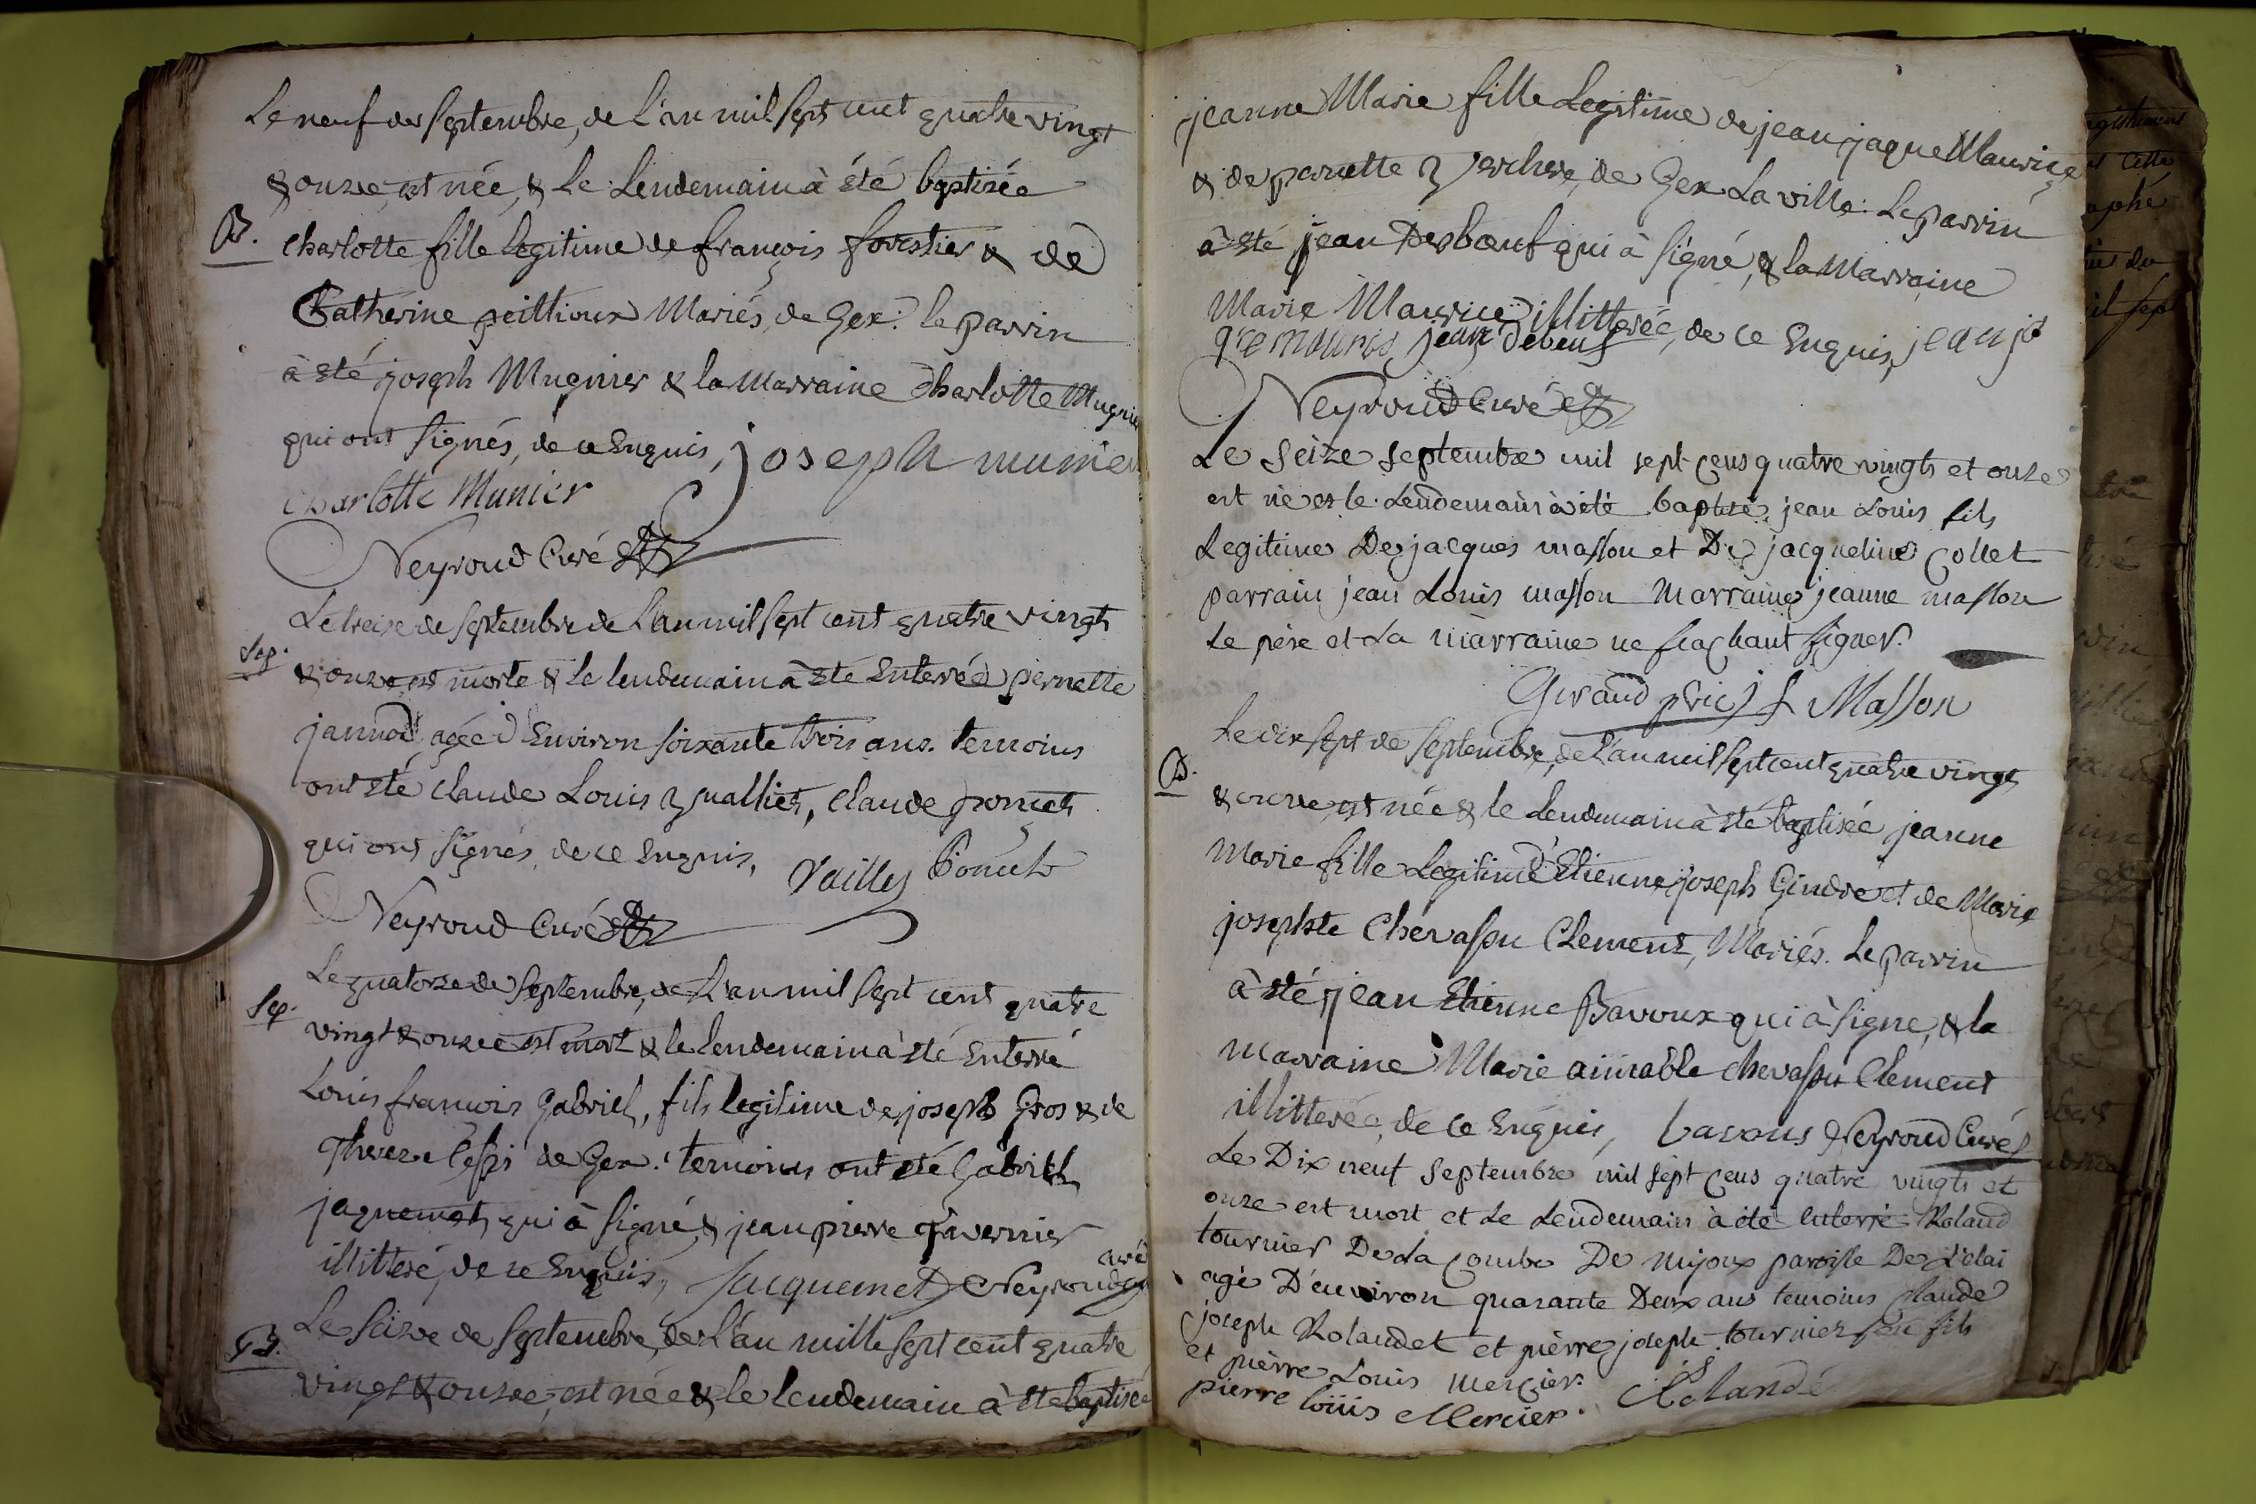 Le neuf de Septembre, de L'an mil Sept cent quatre vingt
& onze, est née, & Le Lendemain à été baptisée
B. charlotte fille legitime de françois forestier & de
Catherine peillioux Mariés, de Gex: le parrin
à été joseph Mugnier & la Marraine Charlotte Mugnier
qui ont signés, de ce Enquis, joseph munier
charlotte Munier
Neyroud Curé
Le treize de septembre de L'an mil Sept cent quatre vingt
Sep. & onze est morte & le lendemain à été Enterrée pernette
jannod agée d'Environ soixante trois ans. temoins
ont été claude Louis Vuallier, claude poncet
qui ont signés, de ce Enquis, Vaillet Poncet
Neyroud Curé
Le quatorze de Septembre, de L'an mil Sept cent quatre
Sep. vingt & onze est mort & le lendemain à été Enterré
Louis francois Gabriel, fils legitime de joseph Gros & de
Therese de Gex: temoins ont été Gabriel
jaquemet, qui à signé, & jean pierre Tavernier
illitteré, de ce Enquis, Jacquemet Neyroud curé
Le Seize de Septembre, de L'an mille Sept cent quatre
B. vingt & onze, est née & le lendemain à été baptisée
jeanne Marie fille Legitime de jean jaque Maurice
& de pernette Verchere, de Gex La ville: Le parrin
à été jean Desbœuf qui à signé, & la Marraine
Marie Maurice illitterée, de ce Enquis, jean ja
q'e mauris jean debeuf
Neyroud Curé
Le Seize septembre mil sept cens quatre vingts et onze
est né et le Lendemain à été baptisé, jean Louis fils
Legitime De jacques masson et De jacqueline Collet
parrain jean Louis masson Marraine jeanne masson
Le père et La marraine ne sçachant signer.
Giraud j L Masson
Le dix sept de Septembre, de L'an mil sept cent quatre vingt
B. & onze, est née & le Lendemain à été baptisée jeanne
Marie fille Legitime d'Etienne joseph Gindre et de Marie
josephte Chevassu Clement, Mariés. Le parrin
à été jean Etienne Bavoux qui à signé, & la
marraine Marie aimable chevassu Clement
illitterée, de ce Enquis, bavous Neyroud Curé
Le Dix neuf Septembre mil sept cens quatre vingts et
onze est mort et Le Lendemain à été enterré Roland
tournier De La Combe De mijoux paroisse De Lelai
agé D'environ quarante Deux ans temoins Claude
joseph Rolandet et pièrre joseph tournier son fils
et pièrre Louis mercier. Rolande
pierre loüis Mercier.